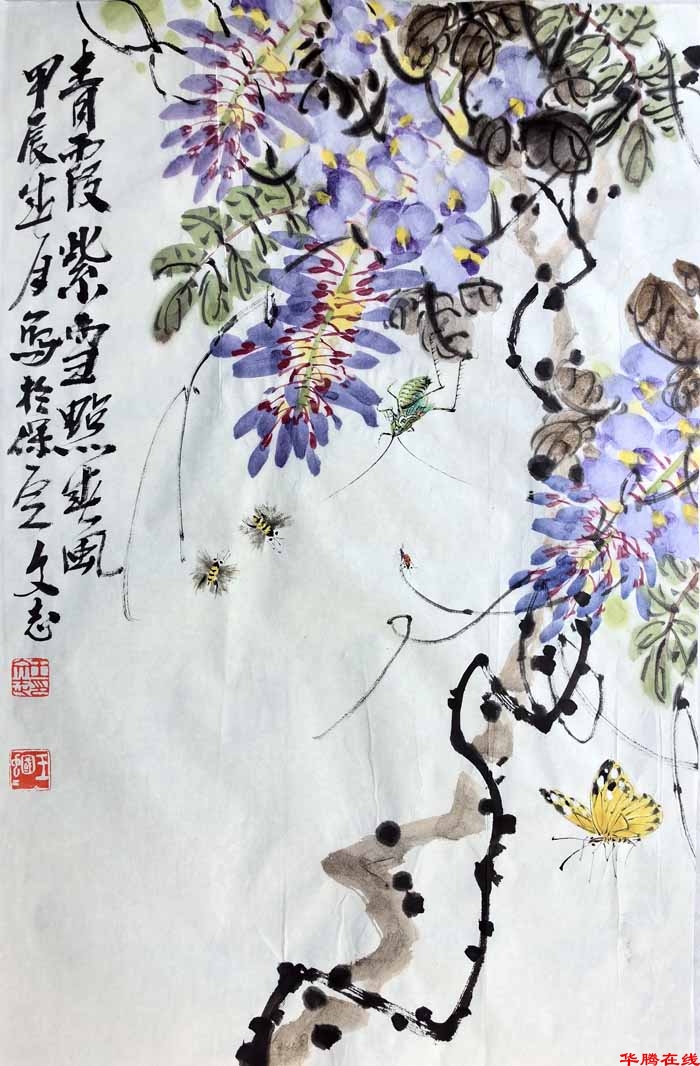 青霞紫雪照春風
甲辰春月寫於保定文志
华腾在线